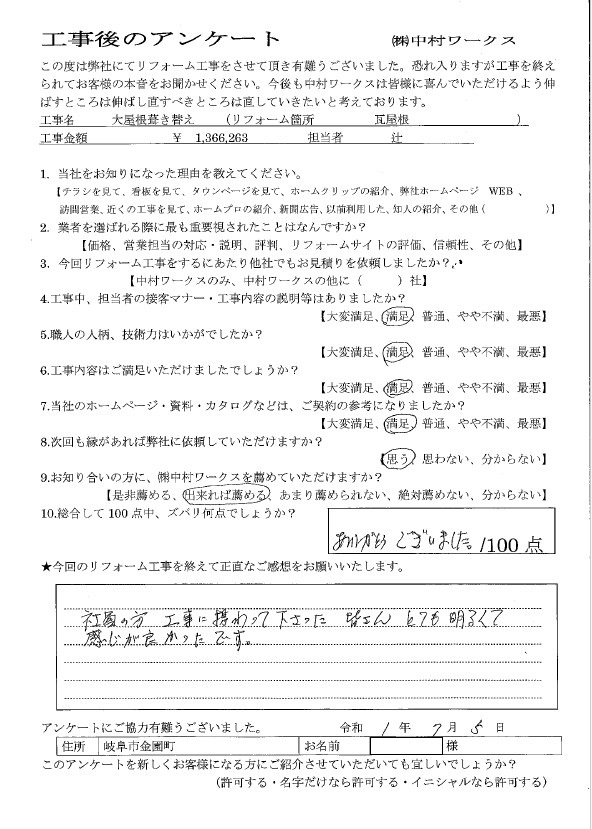 工事後のアンケート　㈱中村ワークス
この度は弊社にてリフォーム工事をさせて頂き有難うございました。恐れ入りますが工事を終え
られてお客様の本音をお聞かせください。今後も中村ワークスは皆様に喜んでいただけるよう伸
ばすところは伸ばし直すべきところは直していきたいと考えております。
工事名　大屋根葺き替え　（リフォーム箇所　瓦屋根　）
工事金額　¥ 1,366,263　担当者　辻
1. 当社をお知りになった理由を教えてください。
【チラシを見て、看板を見て、タウンページを見て、ホームクリップの紹介、弊社ホームページ　WEB 、
訪問営業、近くの工事を見て、ホームプロの紹介、新聞広告、以前利用した、知人の紹介、その他（　）】
2. 業者を選ばれる際に最も重要視されたことはなんですか？
【価格、営業担当の対応・説明、評判、リフォームサイトの評価、信頼性、その他】
3. 今回リフォーム工事をするにあたり他社でもお見積りを依頼しましたか？
【中村ワークスのみ、中村ワークスの他に（　）社】
4.工事中、担当者の接客マナー・工事内容の説明等はありましたか？
【大変満足、満足、普通、やや不満、最悪】
5.職人の人柄、技術力はいかがでしたか？
【大変満足、満足、普通、やや不満、最悪】
6.工事内容はご満足いただけましたでしょうか？
【大変満足、満足、普通、やや不満、最悪】
7.当社のホームページ・資料・カタログなどは、ご契約の参考になりましたか？
【大変満足、満足、普通、やや不満、最悪】
8.次回も縁があれば弊社に依頼していただけますか？
【思う、思わない、分からない】
9.お知り合いの方に、㈱中村ワークスを薦めていただけますか？
【是非薦める、出来れば薦める、あまり薦められない、絶対薦めない、分からない】
10.総合して 100 点中、ズバリ何点でしょうか？
ありがとうございました。/100 点
★今回のリフォーム工事を終えて正直なご感想をお願いいたします。
社員の方 工事に携わって下さった 皆さん とても明るくて
感じが良かったです。
アンケートにご協力有難うございました。　令和 1 年 7 月 5 日
住所　岐阜市金園町　お名前　様
このアンケートを新しくお客様になる方にご紹介させていただいても宜しいでしょうか？
（許可する・名字だけなら許可する・イニシャルなら許可する）